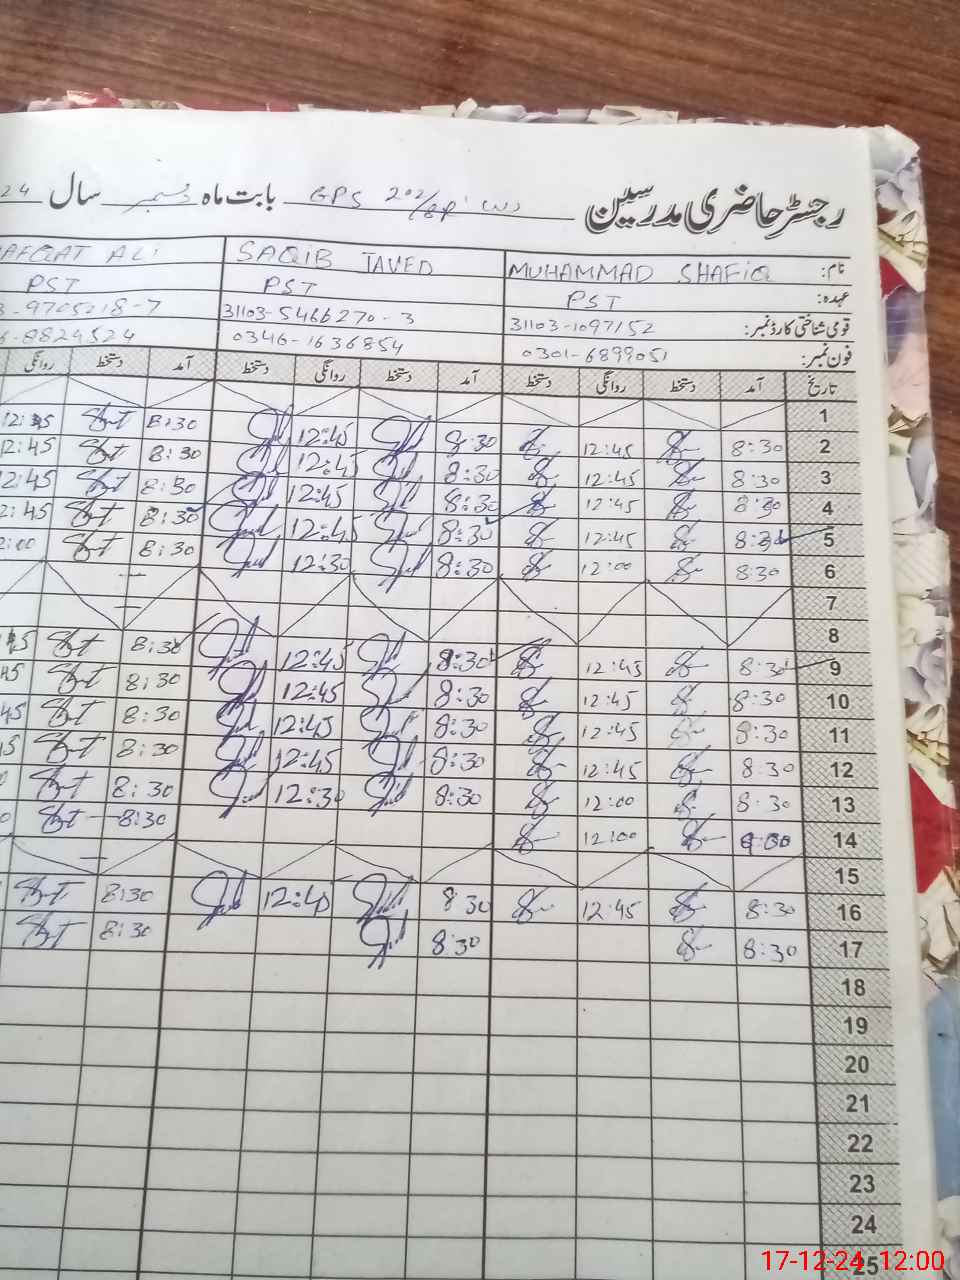 رجسٹر حاضری مدرسین GPS 202/8R بابت ماہ دسمبر سال 24
نام: MUHAMMAD SHAFIQ SAQIB JAVED AFQAT ALI
عہدہ: PST PST PST
قومی شناختی کارڈ نمبر: 31103-1097152 31103-5466270-3 3-9705218-7
فون نمبر: 0301-6899051 0346-1636854 6-8824524
تاریخ آمد دستخط روانگی دستخط آمد دستخط روانگی دستخط آمد دستخط روانگی
1
2 8:30 12:45 8:30 12:45 8:30 12:45
3 8:30 12:45 8:30 12:45 8:30 12:45
4 8:30 12:45 8:30 12:45 8:30 12:45
5 8:30 12:45 8:30 12:45 8:30 2:45
6 8:30 12:00 8:30 12:30 8:30 2:00
7
8
9 8:30 12:45 8:30 12:45 8:30 45
10 8:30 12:45 8:30 12:45 8:30 45
11 8:30 12:45 8:30 12:45 8:30 45
12 8:30 12:45 8:30 12:45 8:30 5
13 8:30 12:00 8:30 12:30 8:30 0
14 12:00 8:30 0
15
16 8:30 12:45 8 30 12:40 8:30
17 8:30 8:30 8:30
18
19
20
21
22
23
24
25
17-12-24 12:00